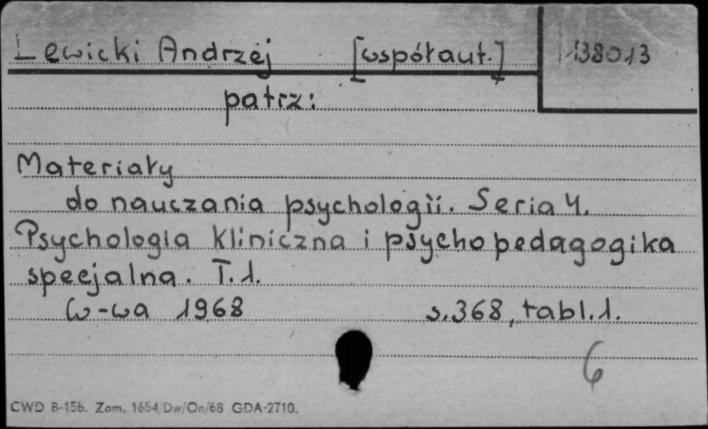 Lewicki Andrzej [współaut.] 138013
patrz:
Materiały
do nauczania psychologii. Seria 4.
Psychologia kliniczna i psychopedagogika
specjalna. T.1.
W-wa 1968 s.368, tabl.1.
6
CWD B-15b. Zam. 1654/Dw/On/68 GDA-2710.